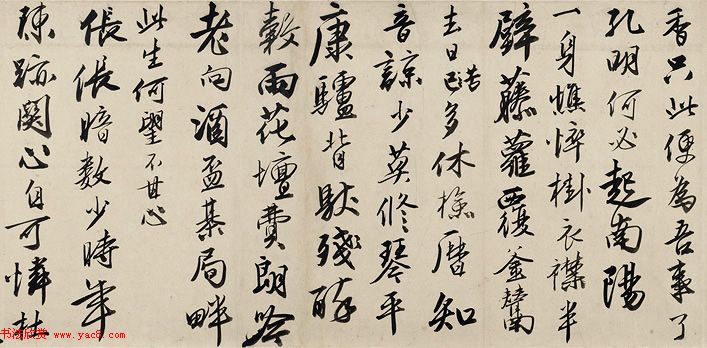 香只此便為吾事了
孔明何必起南陽
一身憔悴掛衣襟半
壁藤蘿覆釜鬵
去日苦多休檢曆知
音諒少莫修琴平
康驢背馱殘醉
穀雨花壇費朗吟
老向酒盃棊局畔
此生何望不甘心
倀倀暗數少時年
陳跡關心自可憐杜
书法欣赏 www.yac8.com